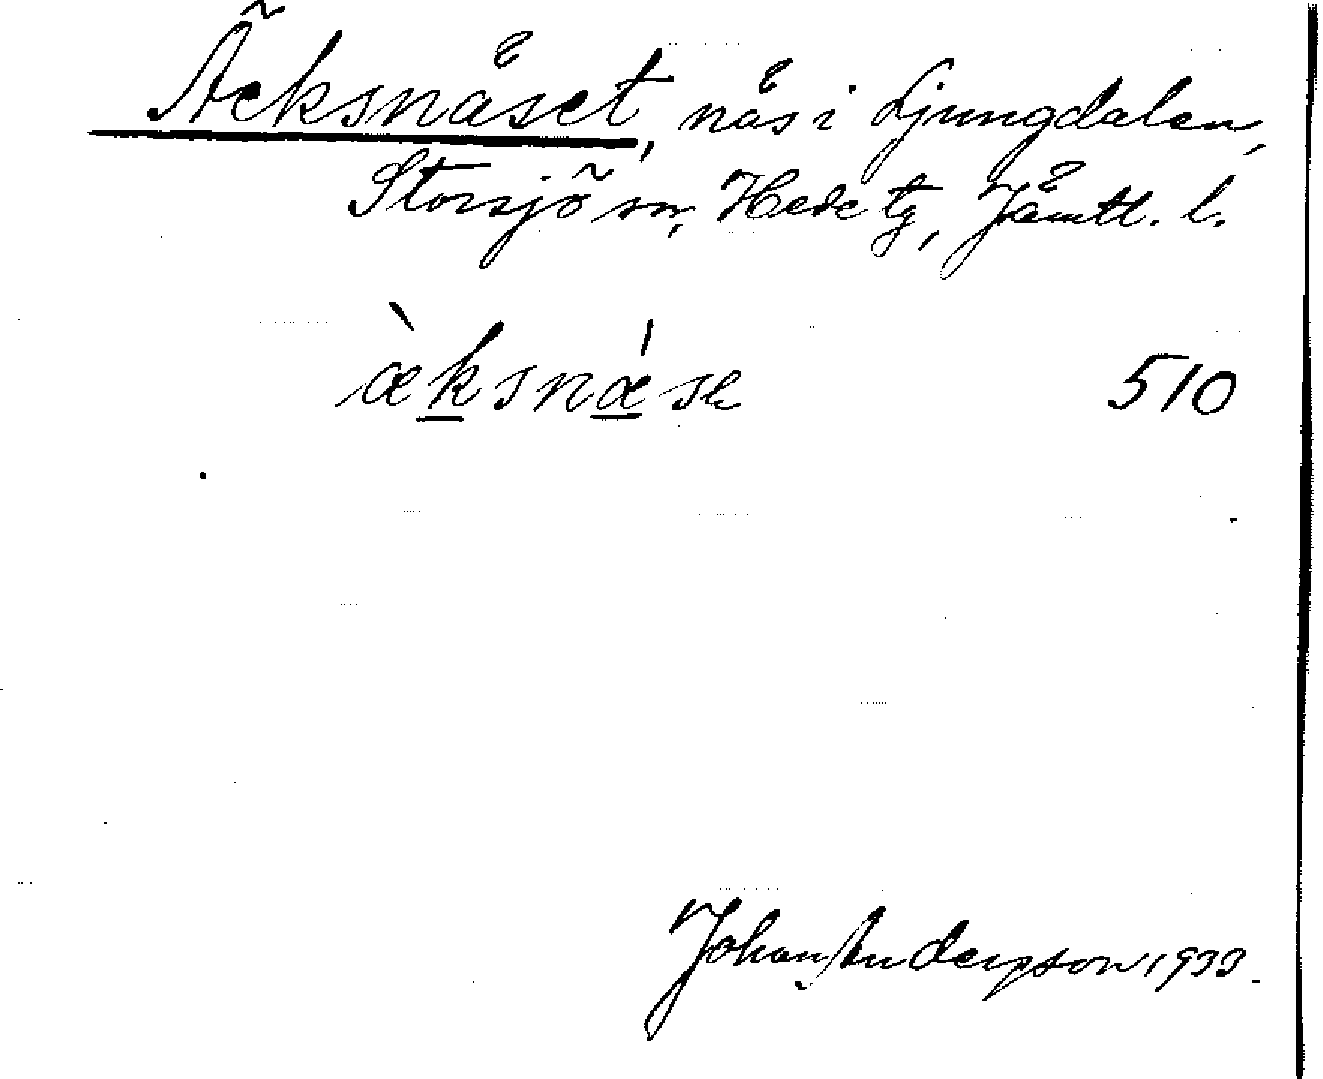 Äcksnäset, näs i Ljungdalen,
Storsjö sn, Hede tg, Jämtl. l.
æ̀ksnǽsɛ 510
Johan Andersson 1933.